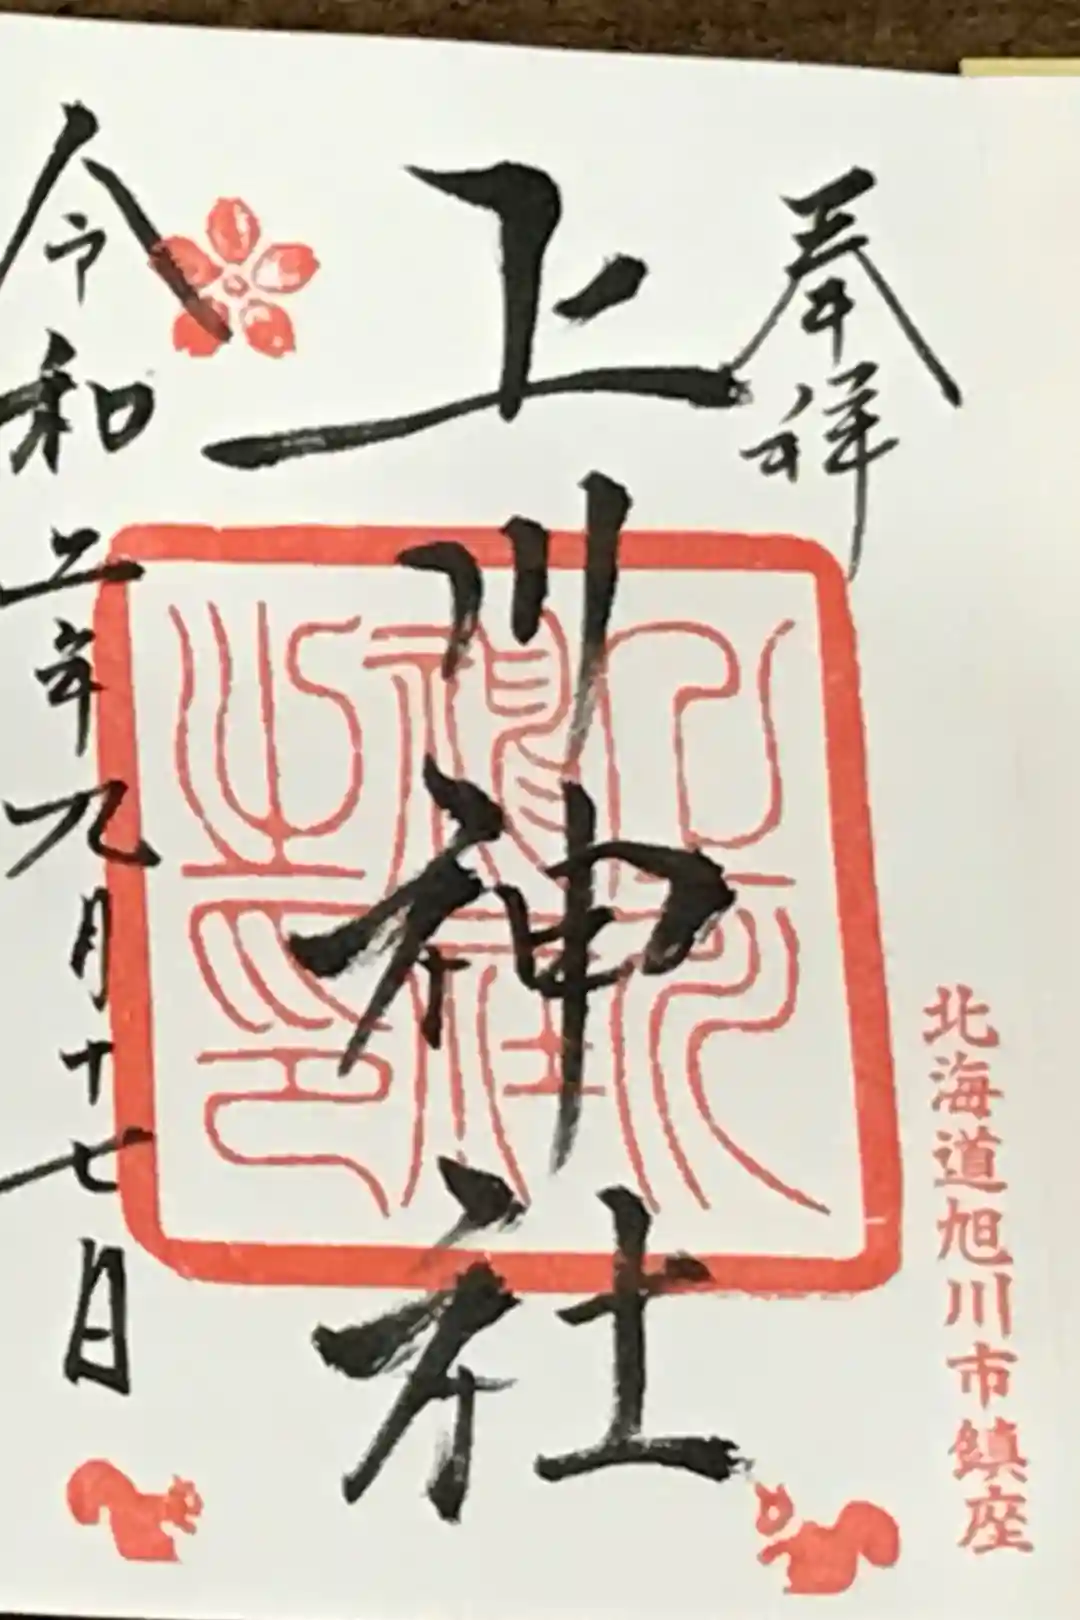 奉拝
北海道旭川市鎮座
上川神社
令和二年九月十七日